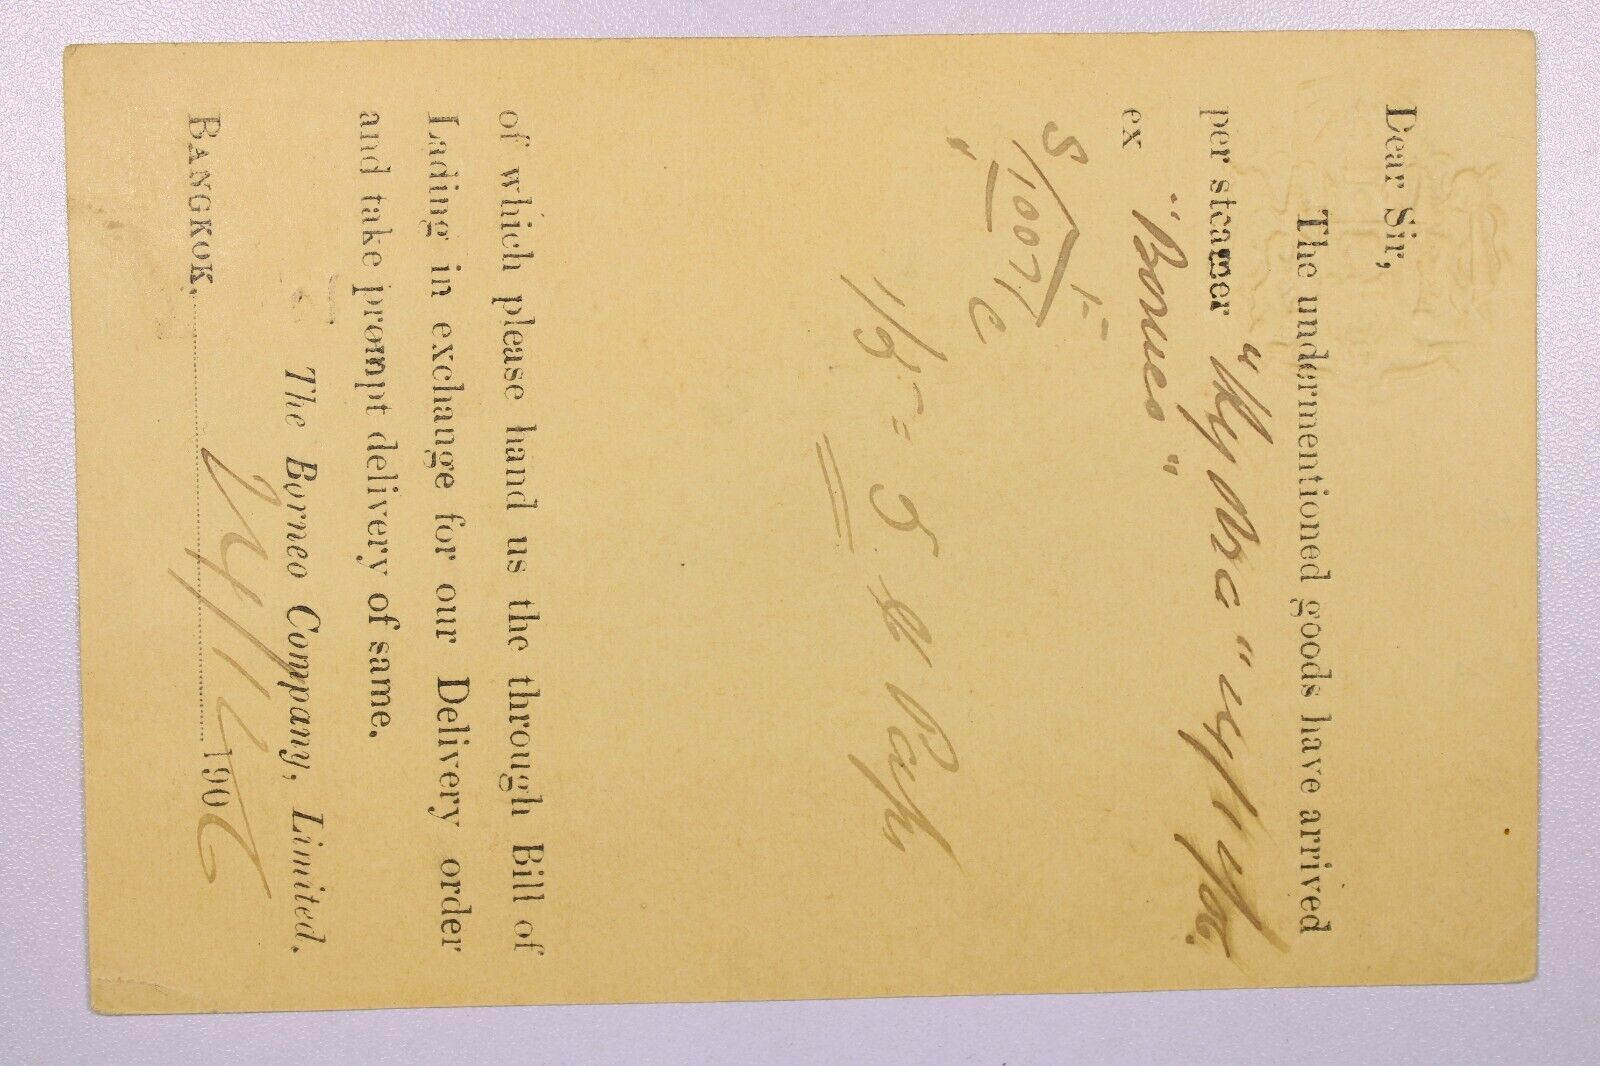 Dear Sir,
The undermentioned goods have arrived
per steamer "Hydra"
ex "Borneo"
S 1007 C
1/5 = 5
of which please hand us the through Bill of
Lading in exchange for our Delivery order
and take prompt delivery of same.
The Borneo Company, Limited.
BANGKOK, 1906